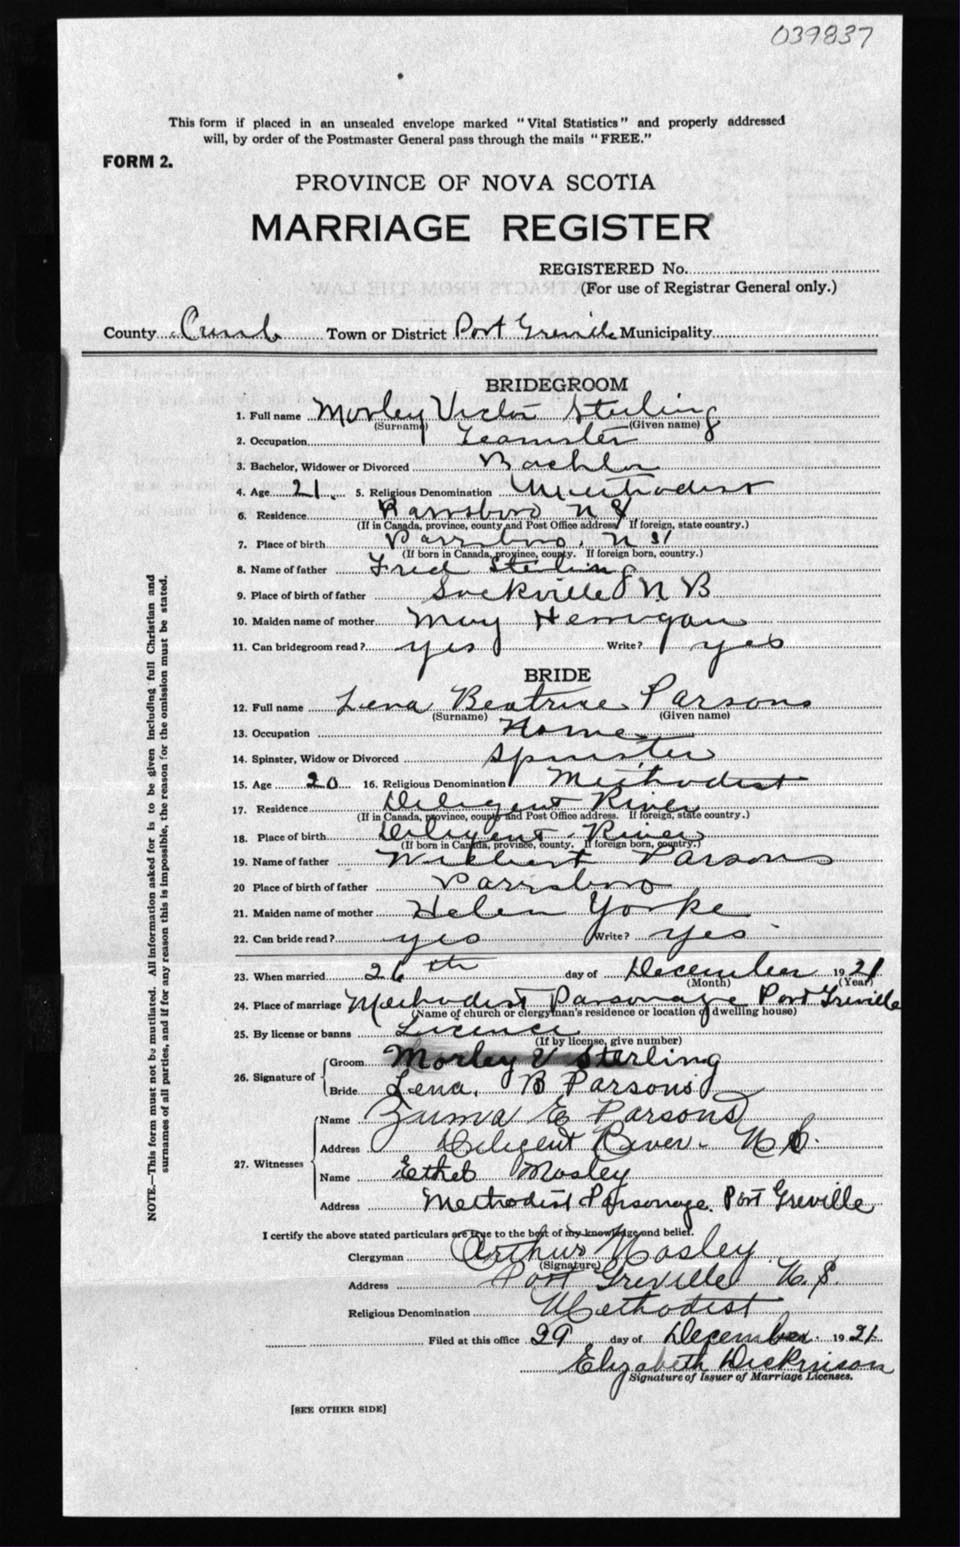 039837
This form if placed in an unsealed envelope marked "Vital Statistics" and properly addressed
will, by order of the Postmaster General pass through the mails "FREE."
FORM 2.
PROVINCE OF NOVA SCOTIA
MARRIAGE REGISTER
REGISTERED No.
(For use of Registrar General only.)
County Cumb Town or District Port Greville Municipality
BRIDEGROOM
1. Full name Morley Victor Sterling
(Surname) (Given name)
2. Occupation Teamster
3. Bachelor, Widower or Divorced Bachlor
4. Age 21. 5. Religious Denomination Methodist
6. Residence Parrsboro N S
(If in Canada, province, county and Post Office address. If foreign, state country.)
7. Place of birth Parrsboro. N S
(If born in Canada, province, county. If foreign born, country.)
8. Name of father Fred Sterling
9. Place of birth of father Sackville N B
10. Maiden name of mother May Herrigan
11. Can bridegroom read? yes Write? yes
BRIDE
12. Full name Lena Beatrice Parsons
(Surname) (Given name)
13. Occupation Home
14. Spinster, Widow or Divorced Spinster
15. Age 20 16. Religious Denomination Methodist
17. Residence Diligent River
(If in Canada, province, county and Post Office address. If foreign, state country.)
18. Place of birth Diligent River
(If born in Canada, province, county. If foreign born, country.)
19. Name of father Wilbert Parsons
20 Place of birth of father Parrsboro
21. Maiden name of mother Helen Yorke
22. Can bride read? yes Write? yes
23. When married 26th day of December 1921
(Month) (Year)
24. Place of marriage Methodist Parsonage Port Greville
(Name of church or clergyman's residence or location of dwelling house)
25. By license or banns Licence
(If by license, give number)
26. Signature of Groom Morley V Sterling
Bride Lena. B Parsons
27. Witnesses Name Zuma E Parsons
Address Diligent River. N S.
Name Ethel Mosley
Address Methodist Parsonage. Port Greville
I certify the above stated particulars are true to the best of my knowledge and belief.
Clergyman Arthur Mosley
(Signature)
Address Port Greville N. S.
Religious Denomination Methodist
Filed at this office 29 day of December. 1921.
Elizabeth Dickinson
Signature of Issuer of Marriage Licenses.
[SEE OTHER SIDE]
NOTE.—This form must not be mutilated. All information asked for is to be given including full Christian and
surnames of all parties, and if for any reason this is impossible, the reason for the omission must be stated.